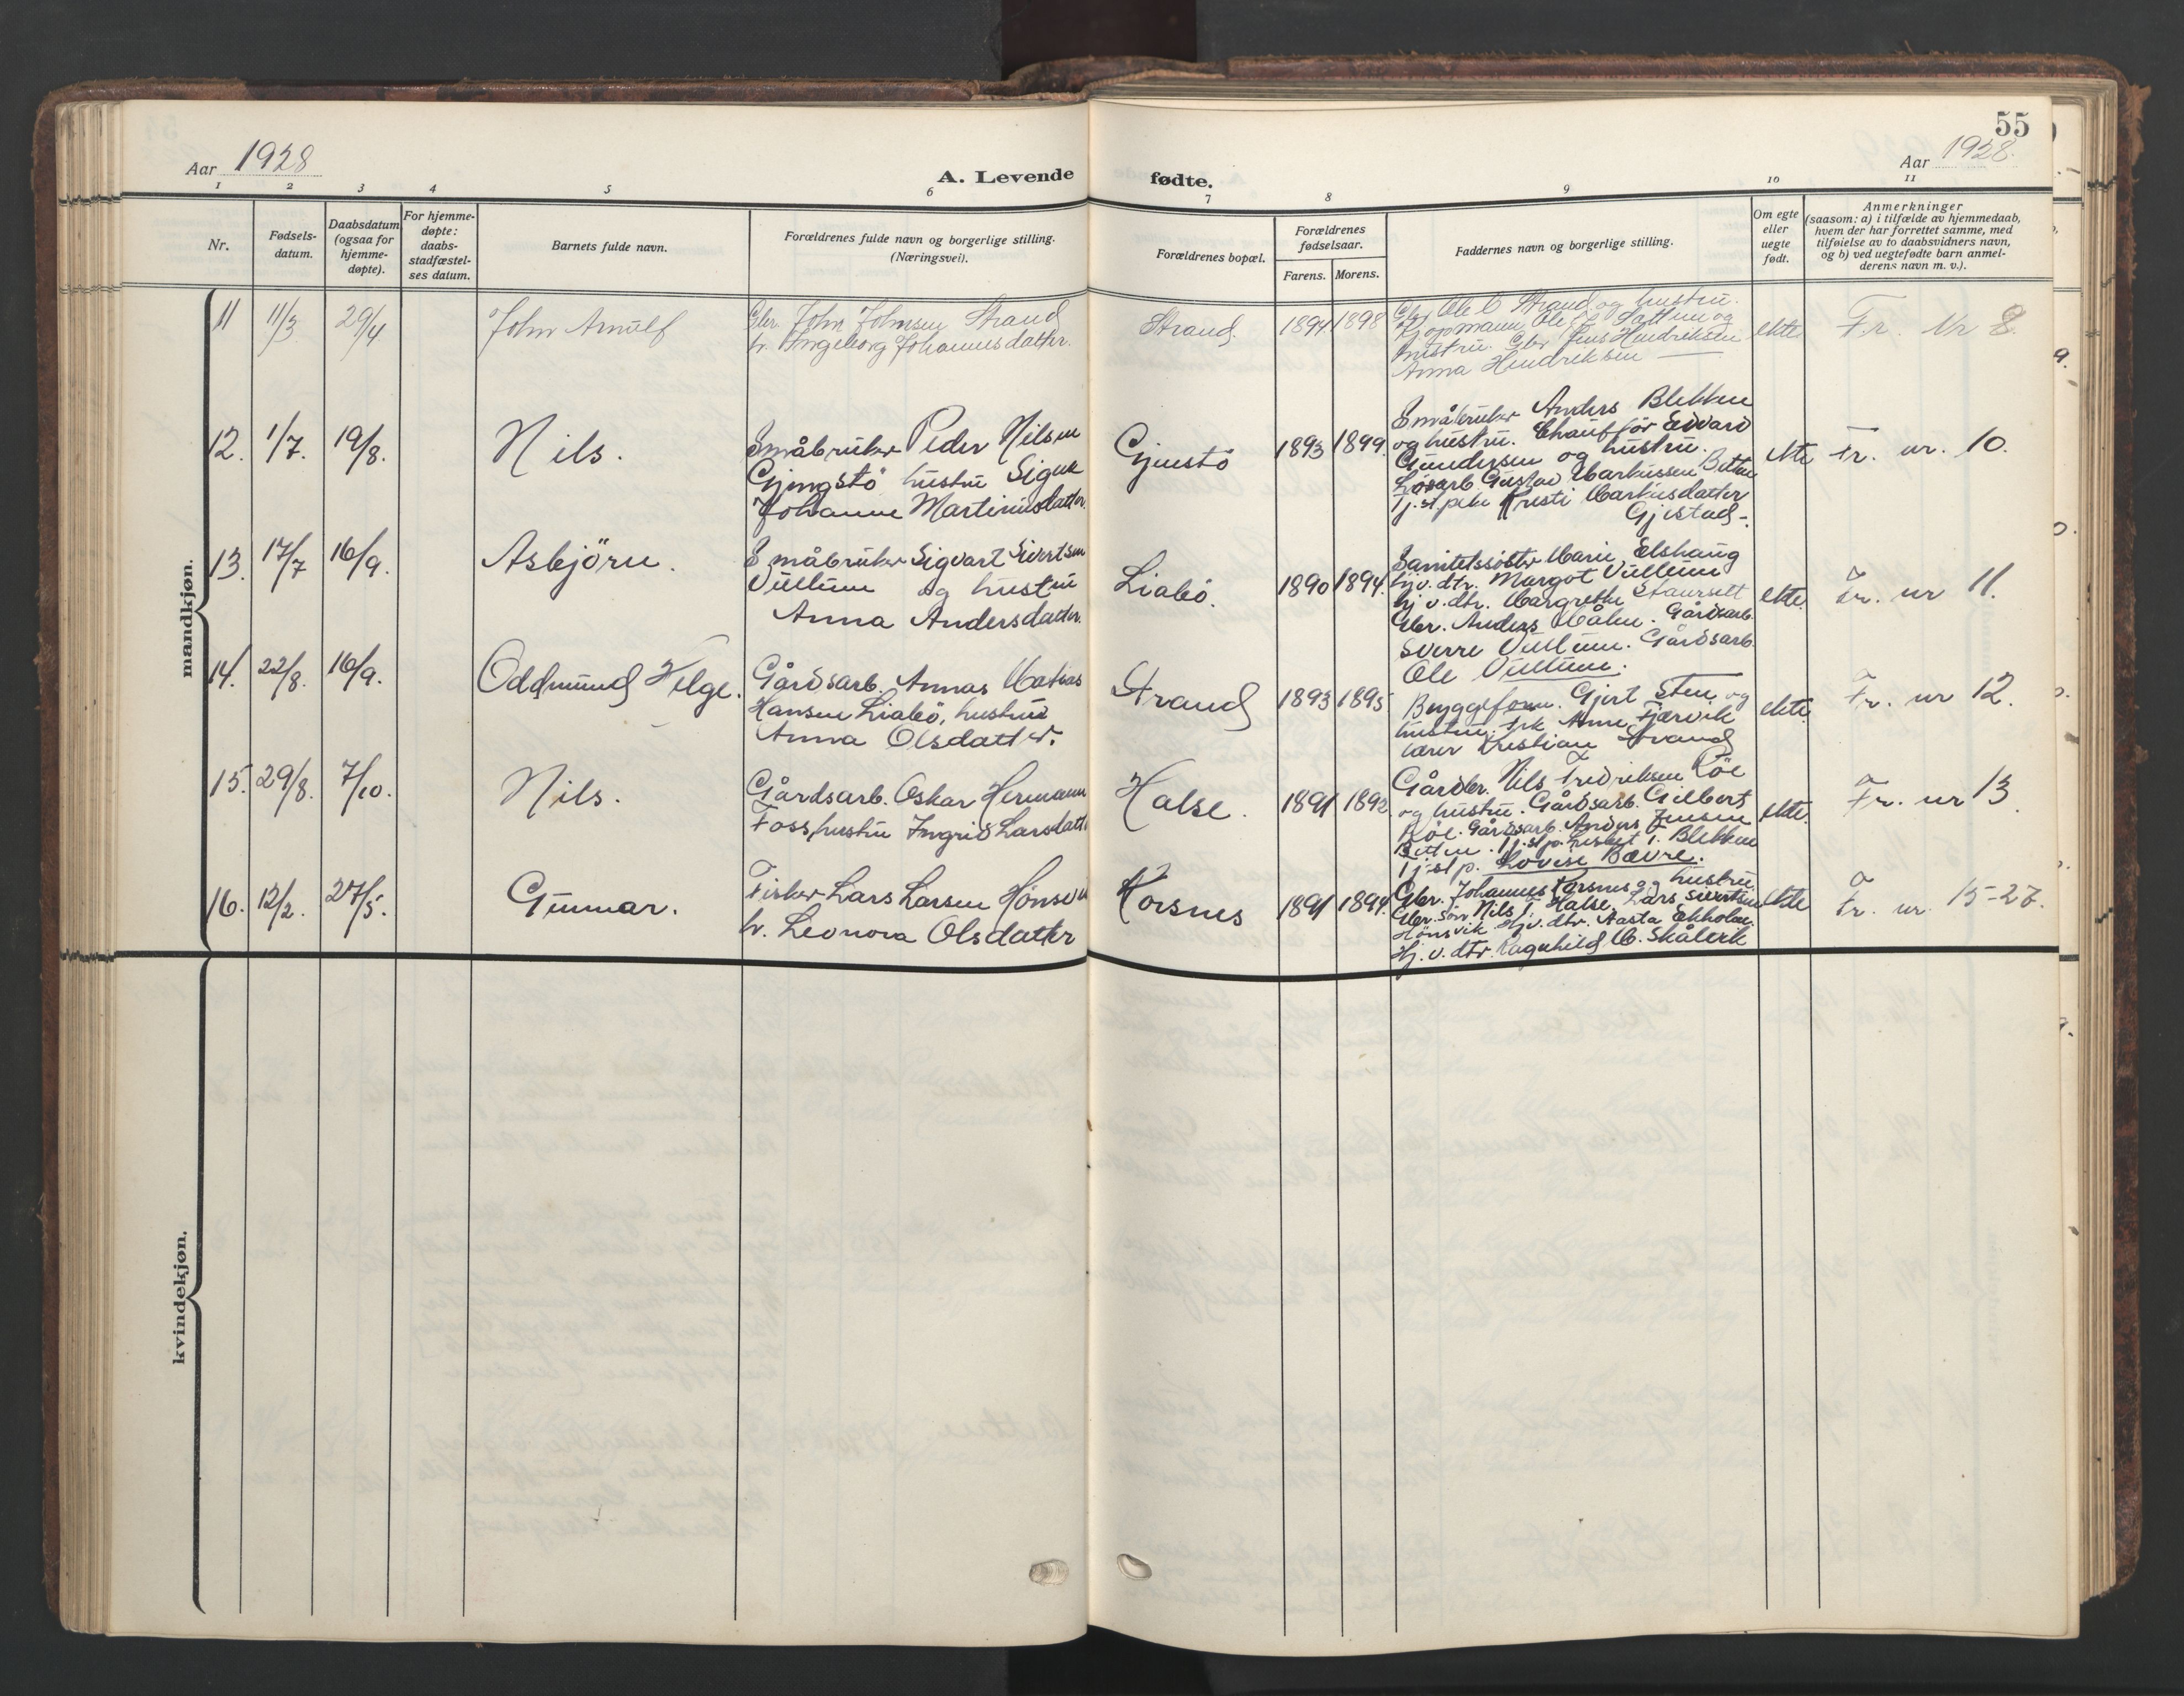 55
Aar 1928
A. Levende fødte.
Aar 1928.
1 2 3 4 5 6 7 8 9 10 11
Nr.
Fødsels-
datum.
Daabsdatum
(ogsaa for
hjemme-
døpte).
For hjemme-
døpte:
daabs-
stadfæstel-
ses datum.
Barnets fulde navn.
Forældrenes fulde navn og borgerlige stilling.
(Næringsvei).
Forældrenes bopæl.
Forældrenes
fødselsaar.
Farens. Morens.
Faddernes navn og borgerlige stilling.
Om egte
eller
uegte
født.
Anmerkninger
(saasom: a) i tilfælde av hjemmedaab,
hvem der har forrettet samme, med
tilføielse av to daabsvidners navn,
og b) ved uegtefødte barn anmel-
derens navn m. v.).
mandkjøn.
11 11/3 29/4 John Arnulf
Gbr. John Johnsen Strand
h. Ingeborg Johannesdatter.
Strand. 1894 1898
Gbr. Ole O Strand og hustru.
Kjøpmann Ole Sættem og
hustru. Gbr Jens Hendriksen
Anna Hendriksen
ekte Fr. Nr 8.
12. 1/7. 19/8. Nils.
Småbruker Peder Nilsen
Gjengstö hustru Signe
Johanne Martinusdatter.
Gjenstö 1893 1899.
Småbruker Anders Blekken
og hustru. Chaufför Edvard
Gundersen og hustru.
Lösarb Gustav Markussen Botten
Tj.st.pike Kristi Markusdatter
Gjestad-.
ekte Fr. nr. 10.
13. 17/7 16/9. Asbjörn.
Småbruker Sigvart Sivertsen
Vullum og hustru
Anna Andersdatter.
Liabö. 1890 1894.
Sanitetssöster Marie Elshaug
hj.v.dtr. Margot Vullum
hj v. dtr. Margrethe Staurset
Gbr. Anders Målen. Gårdsarb.
Sverre Vullum. Gårdsarb.
Ole Vullum.
ekte. Fr. nr 11.
14. 22/8. 16/9. Oddmund Helge.
Gårdsarb. Annas Matias
Hansen Liabö, hustru
Anna Olsdatter.
Strand 1893 1895
Byggeform. Gjert Sten og
hustru, frk Anne Fjærvik
lærer Kristian Strand
ekte. Fr. nr 12.
15. 29/8. 7/10. Nils.
Gårdsarb. Oskar Hermann
Foss, hustru Ingrid Larsdatter
Halse. 1891 1892.
Gårdbr. Nils Fredriksen Röe
og hustru. Gårdsarb. Gilbert
Röe. Gårdsarb. Anders Jensen
Botten. Tj.st.p. Lisbet I. Blekken
Tj.st p. Lovise Bævre.
ekte. Fr. nr 13
16. 12/2. 27/5. Gunnar.
Fisker Lars Larsen Hönsvik
h. Leonora Olsdatter
Korsnes 1891 1894.
Gbr. Johannes Korsnes og hustru
Gbr. sön Nils I. Halse. Lars Sivertsen
Hönsvik Hj.v. dtr. Aasta Ekholm
Hj. v. dtr. Ragnhild M. Skålvik
ekte Fr. nr. 15-27.
kvindekjøn.